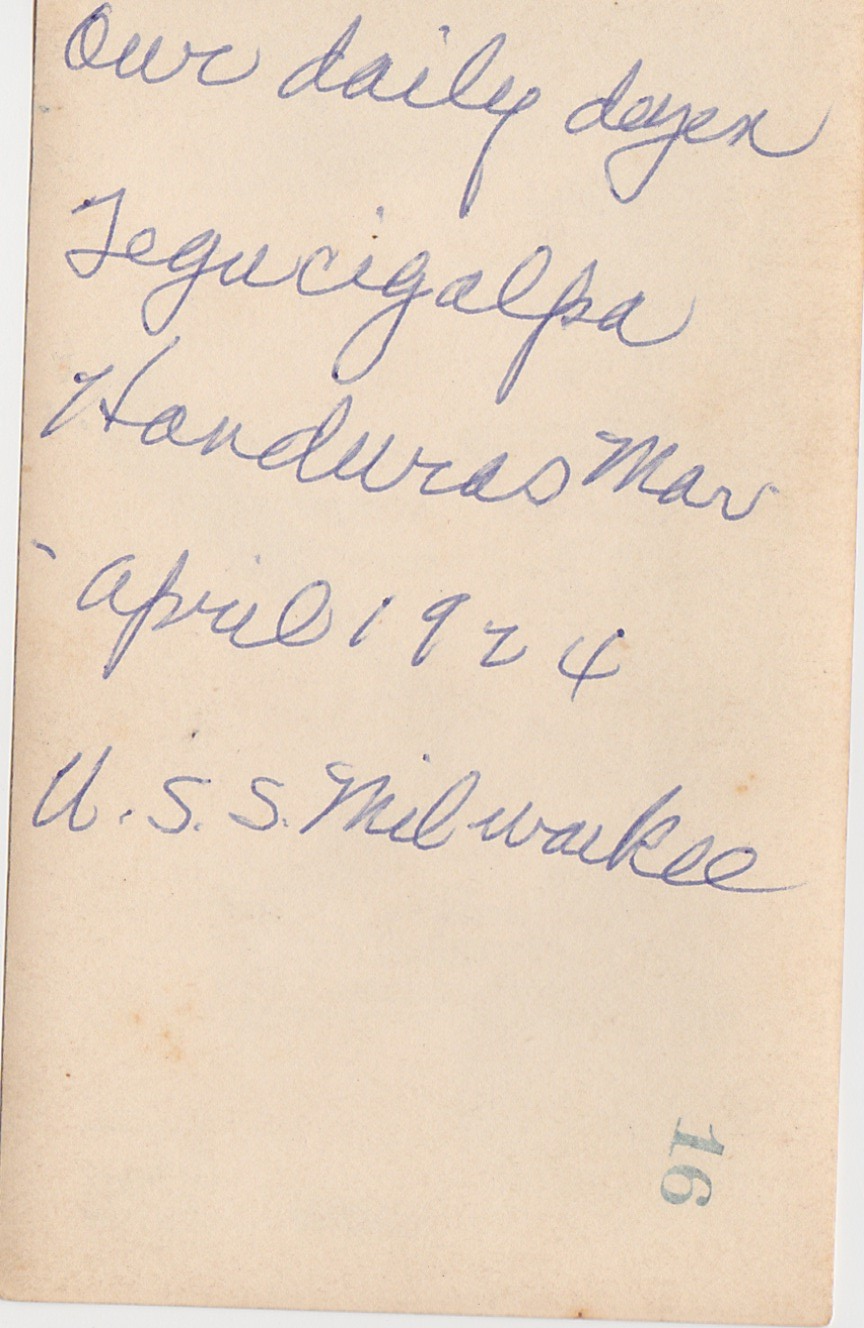 Our daily dozen
Tegucigalpa
Honduras Mar
- April 1924
U.S.S. Milwaukee
16